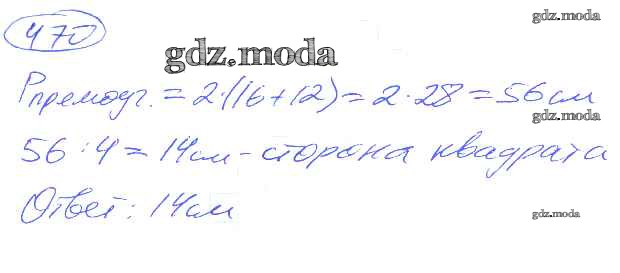 470
gdz.moda
gdz.moda
Pпрямоуг. = 2·(16+12) = 2·28 = 56см
gdz.moda
56 : 4 = 14см - сторона квадрата
Ответ: 14см
gdz.moda